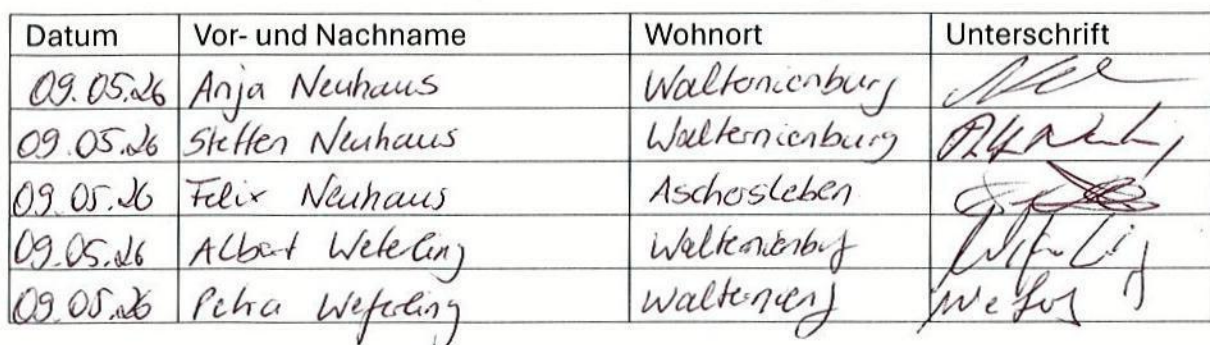 Datum Vor- und Nachname Wohnort Unterschrift
09.05.26 Anja Neuhaus Walternienburg
09.05.26 Steffen Neuhaus Walternienburg
09.05.26 Felix Neuhaus Aschersleben
09.05.26 Albert Weferling Walternienburg
09.05.26 Petra Weferling